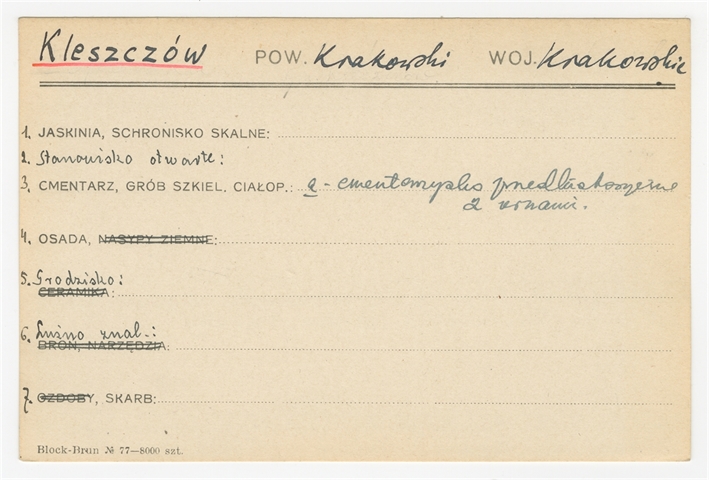 Kleszczów POW. Krakowski WOJ. Krakowskie
1. JASKINIA, SCHRONISKO SKALNE:
2. Stanowisko otwarte:
3. CMENTARZ, GRÓB SZKIEL, CIAŁOP.: a - cmentarzysko przedhistoryczne
z urnami.
4. OSADA, NASYPY ZIEMNE:
5. Grodzisko:
CERAMIKA:
6. Luźno znal.:
BROŃ, NARZĘDZIA:
7. OZDOBY, SKARB:
Block-Brun № 77—8000 szt.